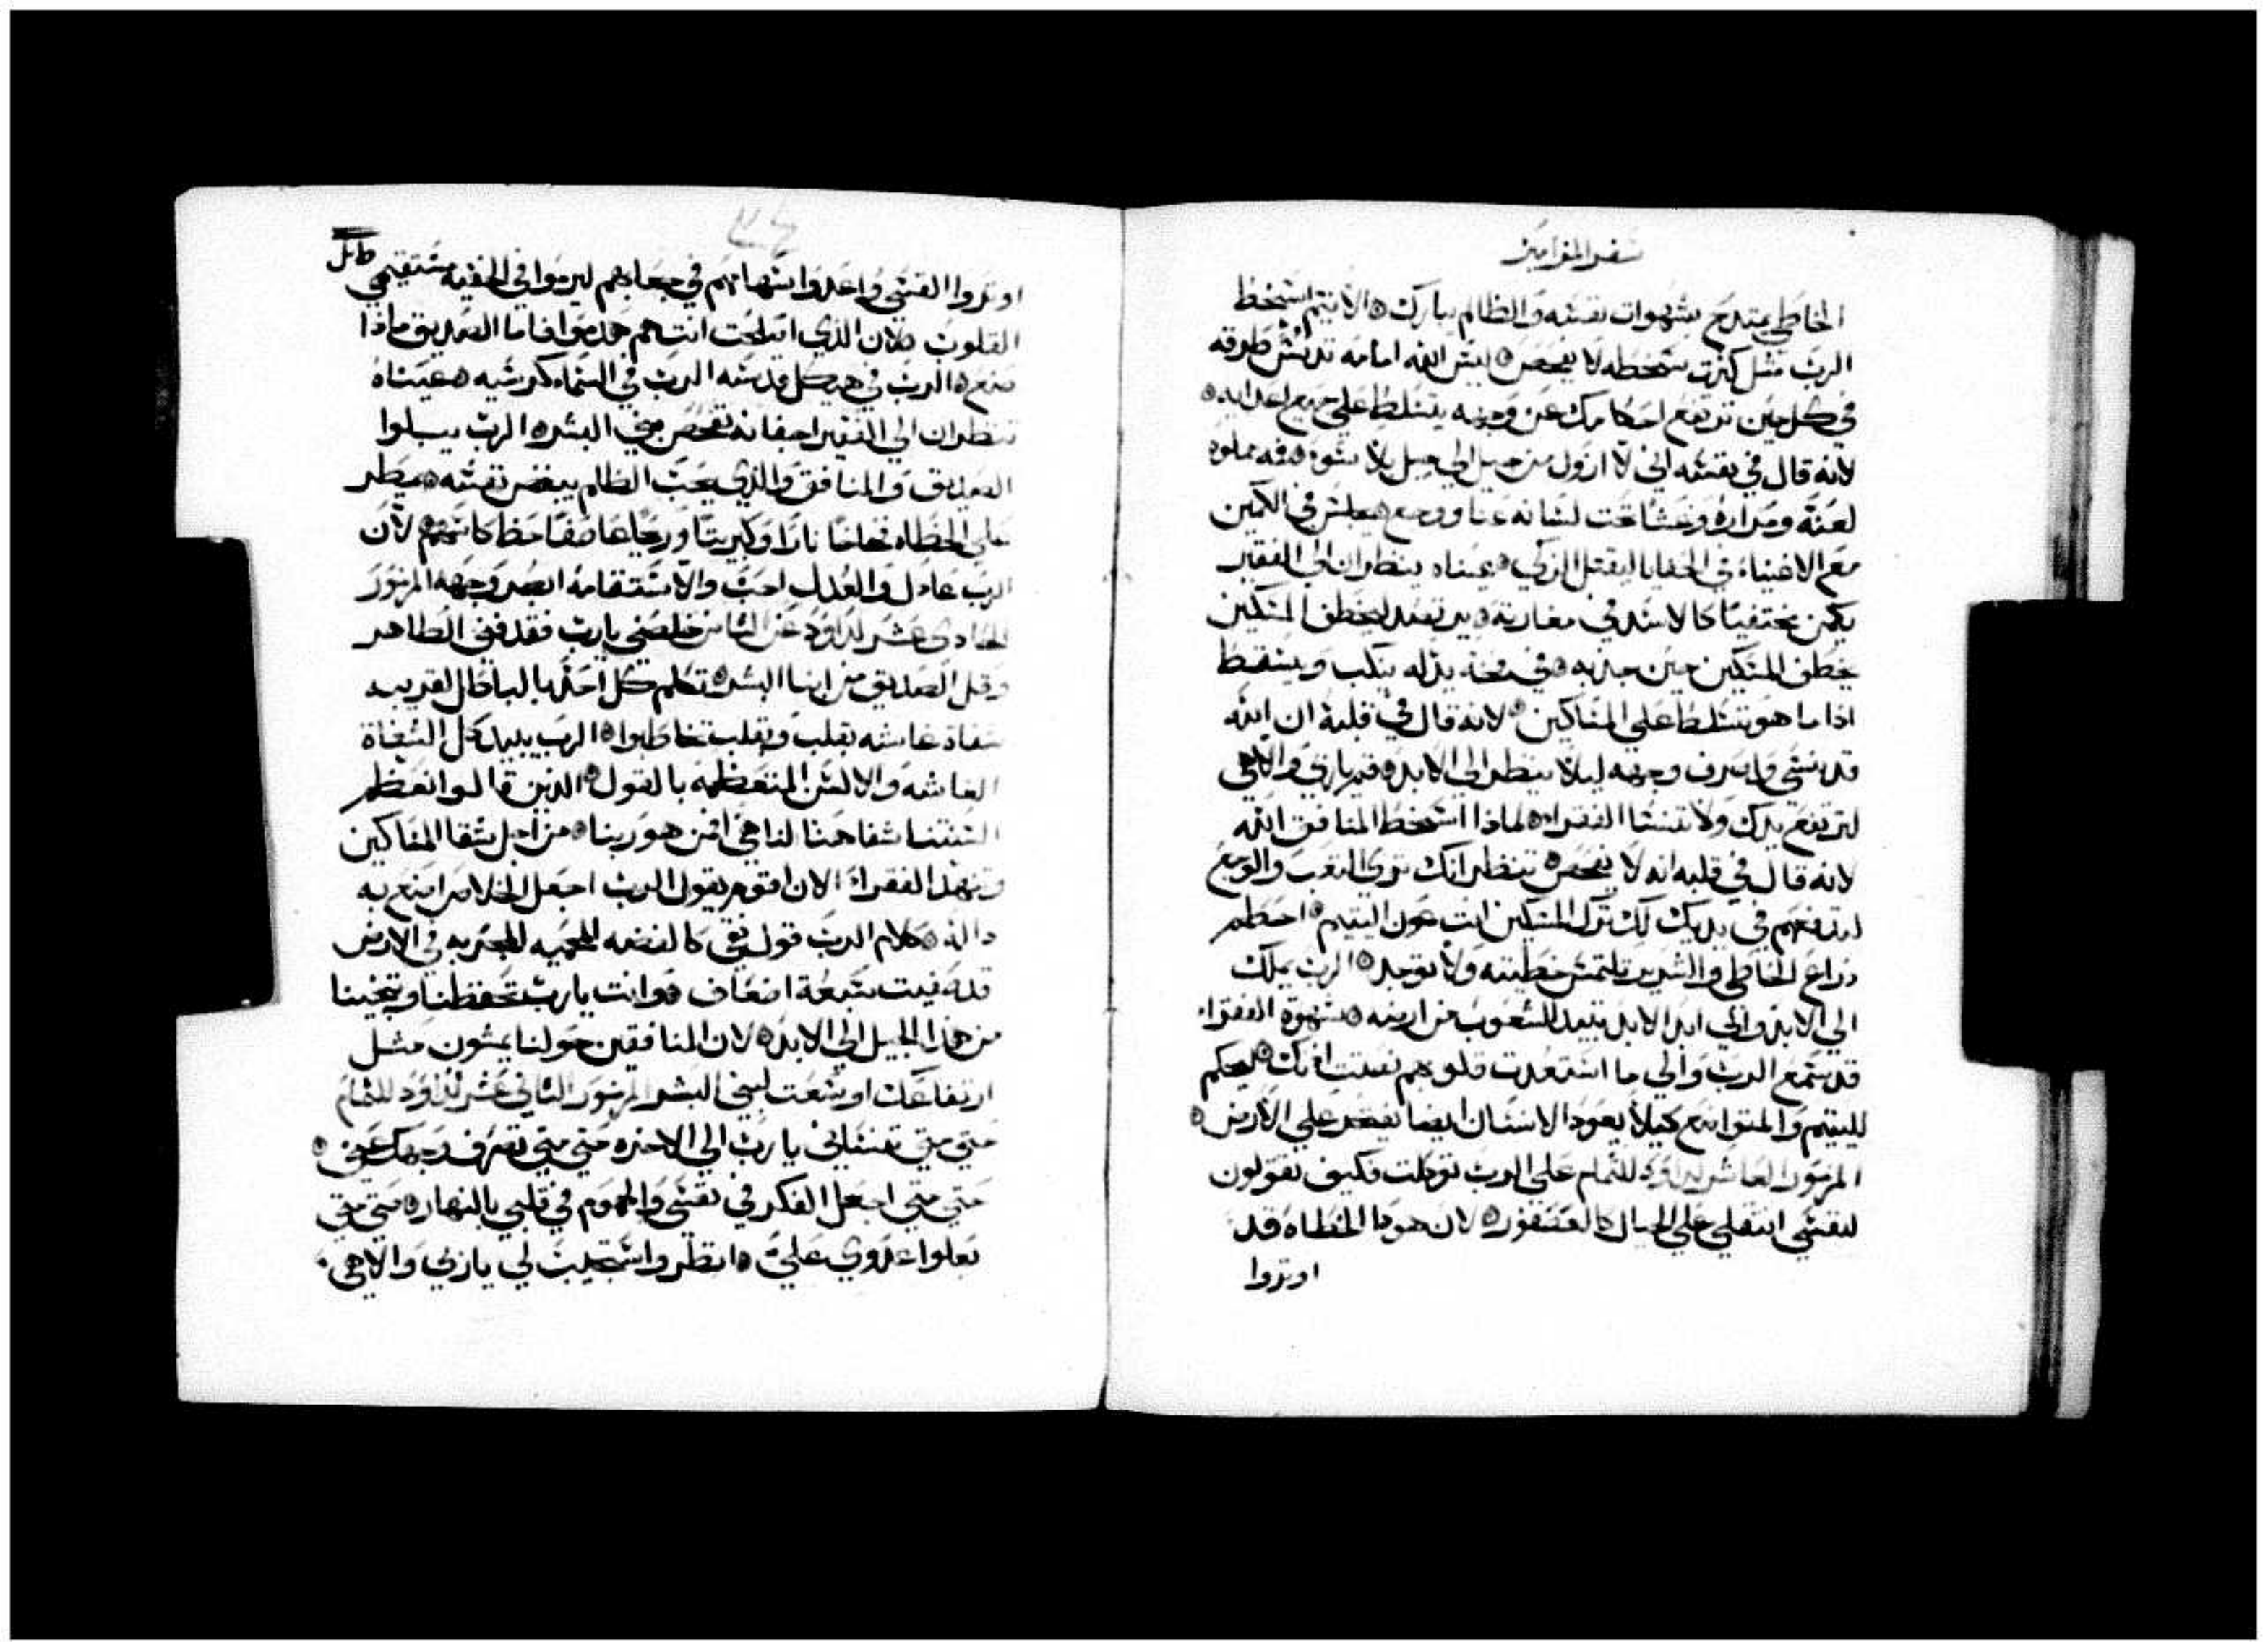 سفر المزامير
الخاطي يمتدح بشهوات نفسه والظالم يبارك ه الاثيم اسخط
الرب مثل كثرت سخطه لا يفحص ه ليس الله امامه تدنس طرقه
في كل حين ترتفع احكامك عن وجهه يتسلط علي جميع اعدايه ه
لانه قال في نفسه اني لا ازول من جيل الي جيل بلا سوء ه فمه مملوء
لعنة ومراره وغشا تحت لسانه عنا ووجع ه يجلس في الكمين
مع الاغنياء في الخفايا ليقتل الزكي ه عيناه ينظران الي الفقير
يكمن مختفيا كالاسد في مغارته ه يرتصد ليخطف المسكين
يخطف المسكين حين جذبه ه في فخه يذله ينكب ويسقط
اذا ما هو تسلط علي المساكين ه لانه قال في قلبه ان الله
قد نسي واصرف وجهه ليلا ينظر الي الابد ه قم ياربي والاهي
لترتفع يدك ولا تنسا الفقراء ه لماذا اسخط المنافق الله
لانه قال في قلبه انه لا يفحص ه تنظر انك تري التعب والوجع
لتدفعهم في يديك لك ترك المسكين انت عون اليتيم ه احطم
ذراع الخاطي والشرير تلتمس خطيته ولا توجد ه الرب يملك
الي الابد والي ابد الابد تبيد الشعوب من ارضه ه شهوة الفقراء
قد سمع الرب والي ما استعدت قلوبهم نصتت اذنك ه ليحكم
لليتيم والمتواضع كيلا يعود الانسان ايضا يفخر علي الارض ه
المزمور العاشر لداود للتمام علي الرب توكلت فكيف تقولون
لنفسي انتقلي علي الجبال كالعصفور ه لان هودا الخطاه قد
اوتروا
اوتروا القسي واعدوا سهامهم في جعابهم ليرموا في الخفيه مستقيمي
القلوب ه لان الذي اصلحت انت هم هدموا فاما الصديق ماذا
صنع ه الرب في هيكل قدسه الرب في السماء كرسيه ه عيناه
تنظران الي الفقير اجفانه تفحص بني البشر ه الرب يبلوا
الصديق والمنافق والذي يحب الظلم يبغض نفسه ه يمطر
علي الخطاه فخاخا نارا وكبريتا وريحا عاصفا حظ كاسهم ه لان
الرب عادل والعدل احب والاستقامه ابصر وجهه المزمور
الحادي عشر لداود عن الثامن خلصني يارب فقد فني الطاهر
وقل الصديق من ابنا البشر ه تكلم كل احد بالباطل لقريبه
شفاة غاشه بقلب وبقلب تخاطبوا ه الرب يبيد كل الشفاة
الغاشه والالسن المتعظمه بالقول ه الذين قالوا نعظم
السنتنا شفاهنا لنا هي افمن هو ربنا ه من اجل شقا المساكين
وتنهد الفقراء الان اقوم يقول الرب اجعل الخلاص اصنع به
دالة ه كلام الرب قول نقي كالفضه المحميه المجربه في الارض
قد صفيت سبعة اضعاف ه وانت يارب تحفظنا وتنجينا
من هذا الجيل الي الابد ه لان المنافقين حولنا يمشون مثل
ارتفاعك اوسعت لبني البشر المزمور الثاني عشر لداود للتمام
حتي متي تنساني يا رب الي الاخره حتي متي تصرف وجهك عني ه
حتي متي اجعل الفكر في نفسي والهموم في قلبي بالنهار ه حتي متي
يعلوا عدوي علي ه انظر واستجيب لي ياربي والاهي ه